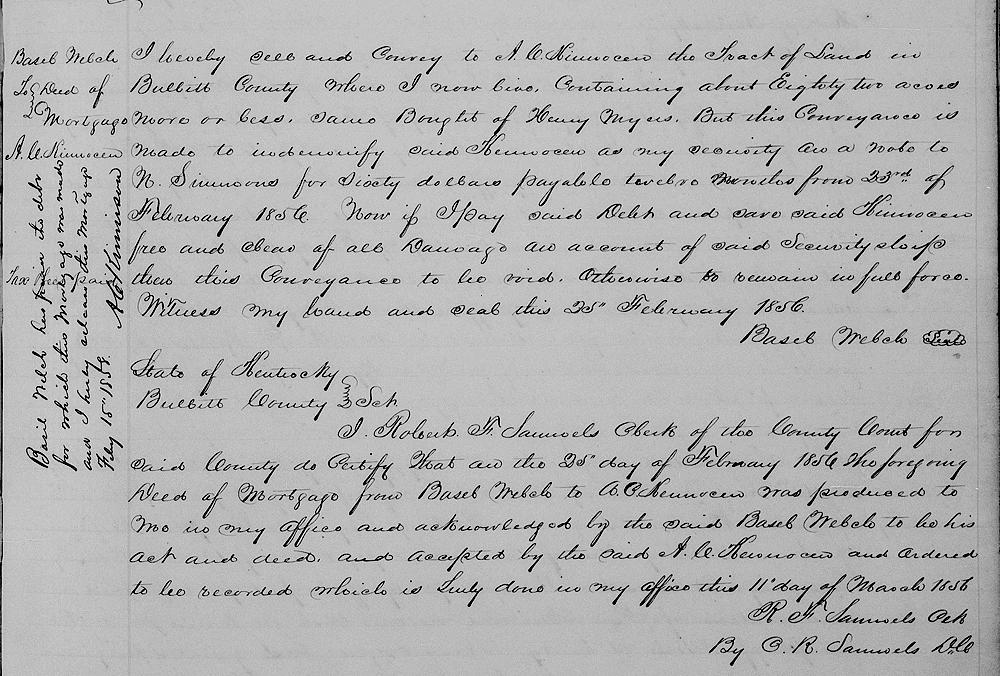 Basel Welch
To Deed of
Mortgage
A. C. Kinnocen
Tax Rec paid
I hereby sell and Convey to A. C. Kinnocen the Tract of Land in
Bullitt County where I now live, Containing about Eighty two acres
more or less. same Bought of Henry Myers. But this Conveyance is
made to indemnify said Kinnocen as my security on a note to
N. Simmons for sixty dollars payable twelve months from 23rd of
February 1856 Now if I pay said Debt and save said Kinnocen
free and clear of all Damage on account of said Security ship
then this Conveyance to be void. Otherwise to remain in full force.
Witness my hand and seal this 25" February 1856.
Basel Welch Seal
State of Kentucky
Bullitt County Sct
I. Robert. F. Samuels Clerk of the County Court for
said County do Certify That on the 25" day of February 1856 The foregoing
Deed of Mortgage from Basel Welch to A. C. Kennocen was produced to
me in my office and acknowledged by the said Basel Welch to be his
act and deed. and accepted by the said A. C. Kennocen and ordered
to be recorded which is Truly done in my office this 11" day of March 1856
R. F. Samuels Clk
By C. R. Samuels D.C
Basil Welch has paid the debt
for which this Mortgage was made
and I hereby release this Mortgage
Feby 15" 1858.
A C Kinnison